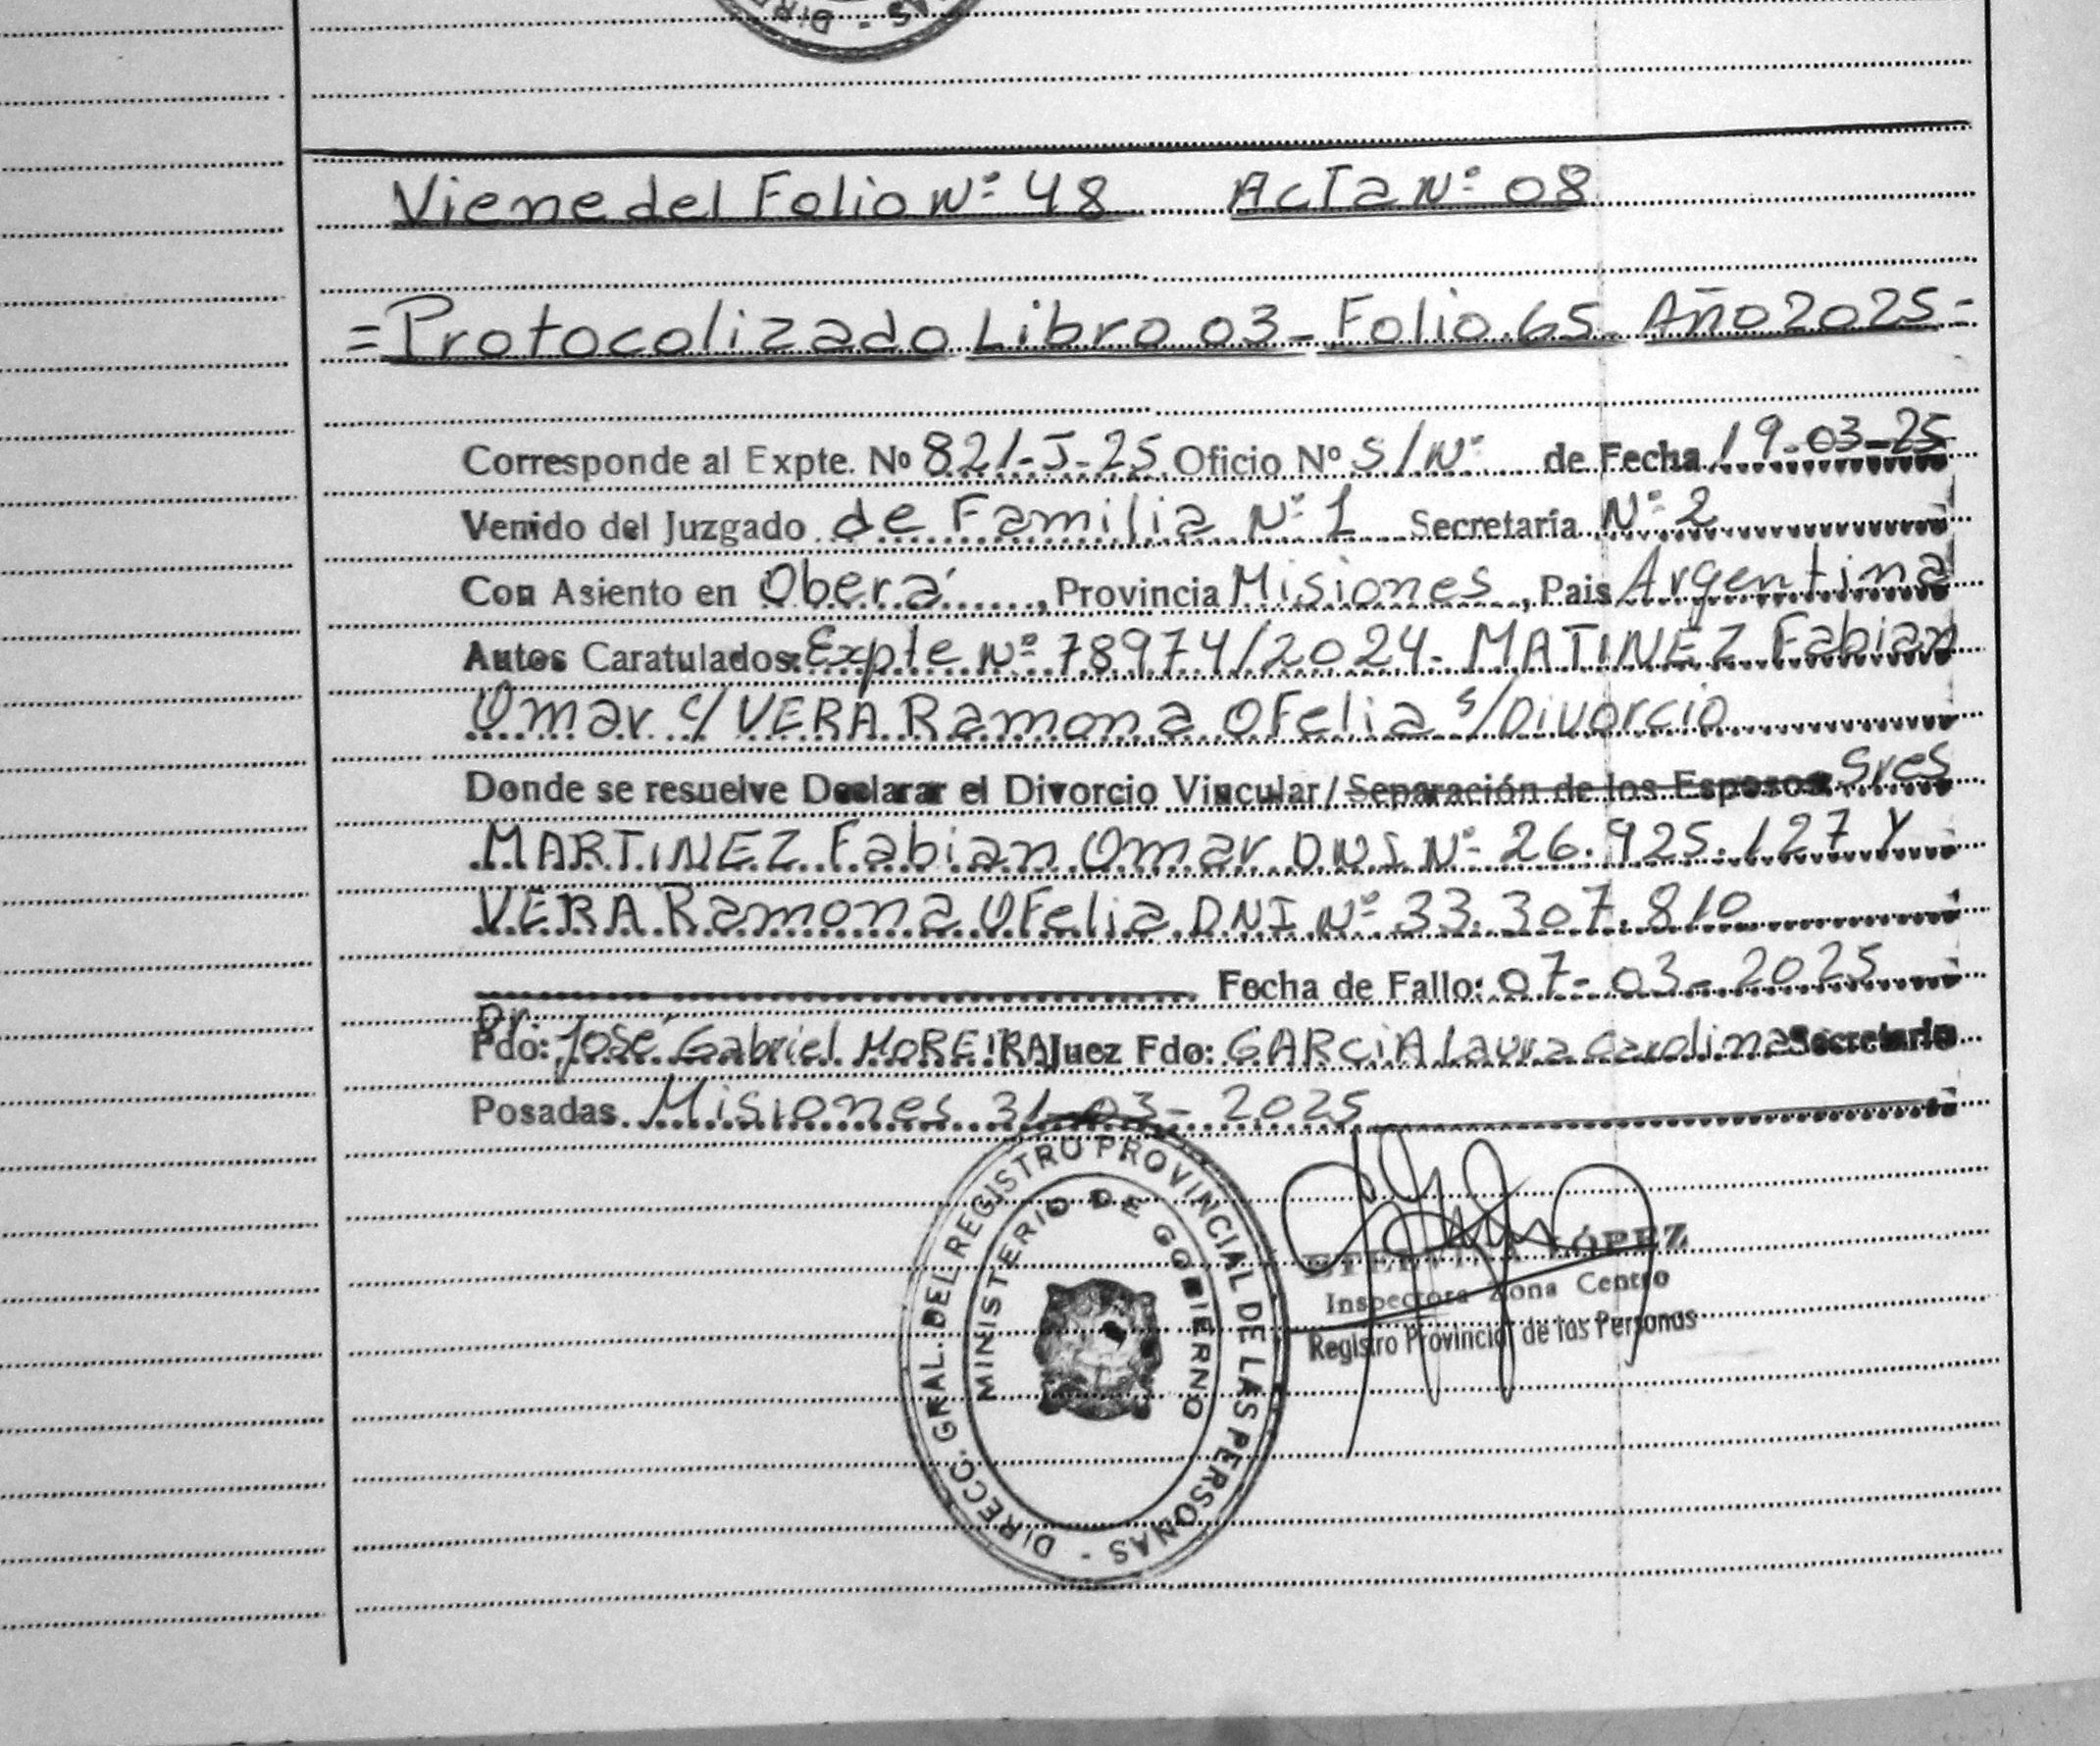 Viene del Folio Nº 48 Acta Nº 08
= Protocolizado Libro 03 - Folio 65 - Año 2025 =
Corresponde al Expte. Nº 821-J-25 Oficio Nº S/Nº de Fecha 19-03-25
Venido del Juzgado de Familia Nº 1 Secretaría Nº 2
Con Asiento en Oberá, Provincia Misiones, Pais Argentina
Autos Caratulados: Expte Nº 78974/2024 - MATINEZ Fabian
Omar c/ VERA Ramona OFelia s/ Divorcio
Donde se resuelve Declarar el Divorcio Vincular / Separación de los Esposos Sres
MARTINEZ Fabian Omar DNI Nº 26.925.127 Y
VERA Ramona OFelia DNI Nº 33.307.810
Fecha de Fallo: 07-03-2025
Dr.
Fdo: José Gabriel MOREIRA Juez Fdo: GARCIA Laura Carolina Secretario
Posadas. Misiones 31-03-2025
DIRECC. GRAL. DEL REGISTRO PROVINCIAL DE LAS PERSONAS -
MINISTERIO DE GOBIERNO
LÓPEZ
Inspectora Zona Centro
Registro Provincial de las Personas